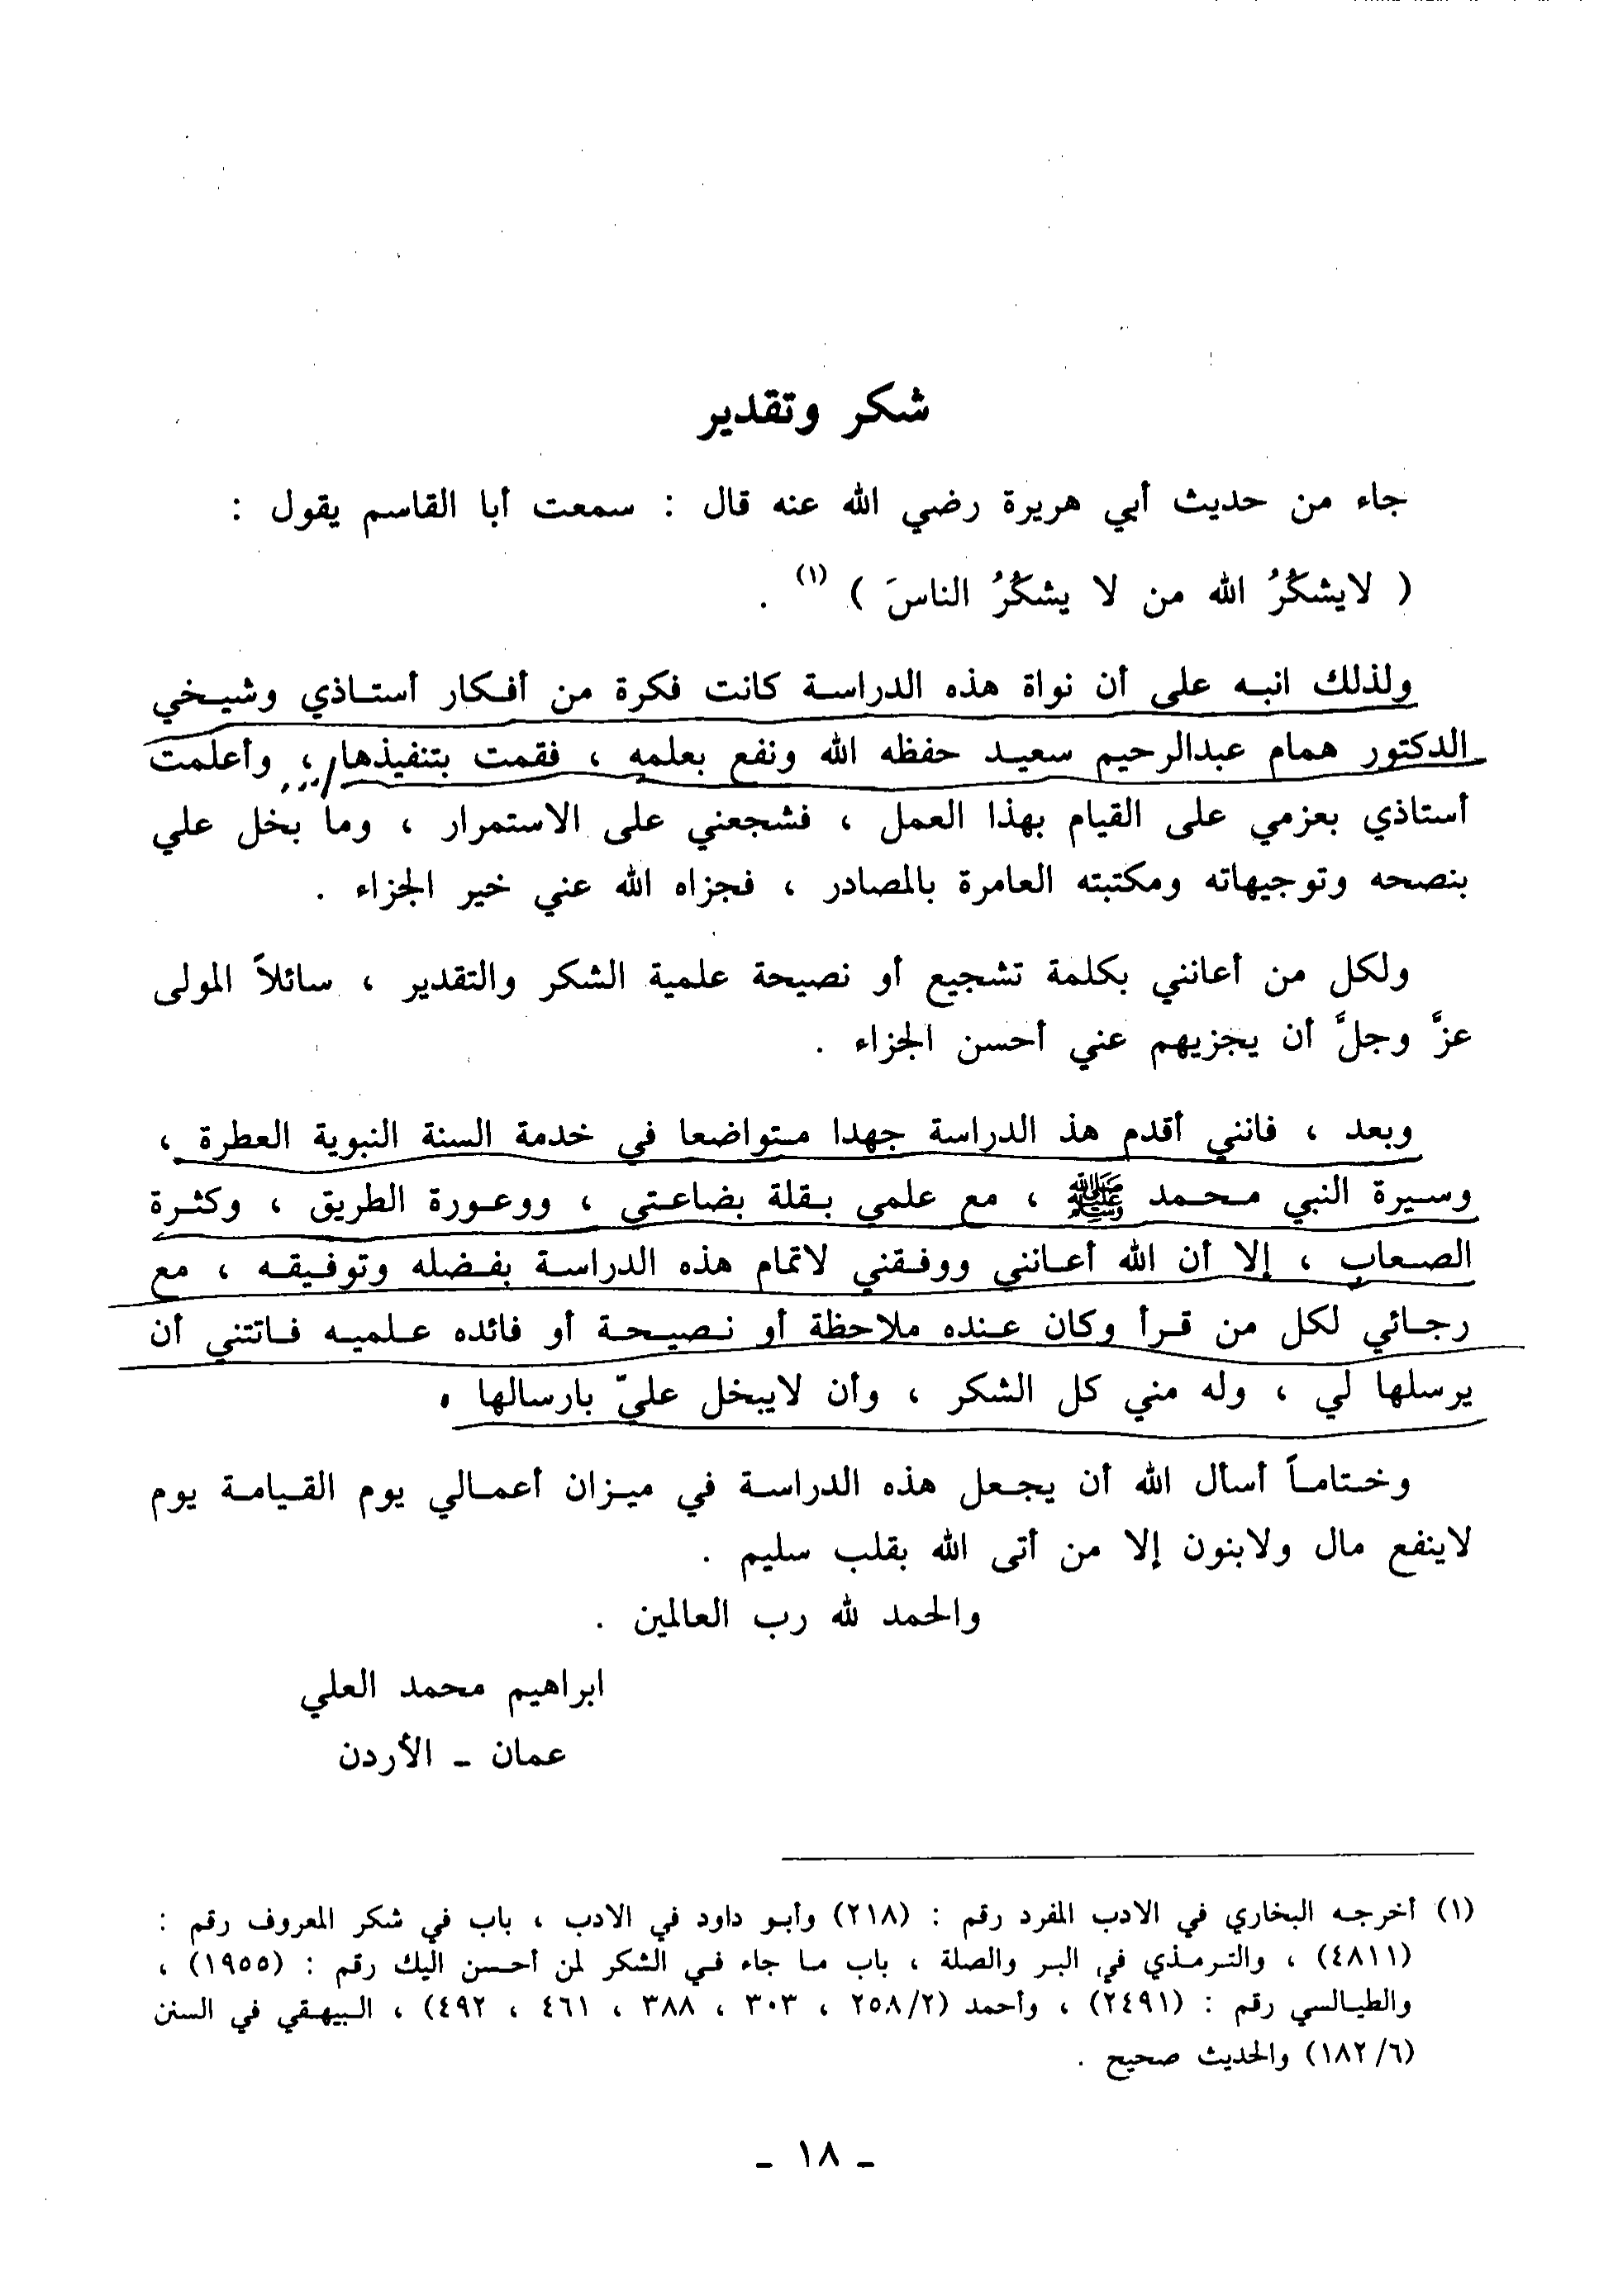 شكر وتقدير
جاء من حديث أبي هريرة رضي الله عنه قال : سمعت أبا القاسم يقول :
( لايشكُرُ الله من لا يشكُرُ الناسَ ) (١) .
ولذلك انبه على أن نواة هذه الدراسة كانت فكرة من أفكار أستاذي وشيخي
الدكتور همام عبدالرحيم سعيد حفظه الله ونفع بعلمه ، فقمت بتنفيذها ، وأعلمت
أستاذي بعزمي على القيام بهذا العمل ، فشجعني على الاستمرار ، وما بخل علي
بنصحه وتوجيهاته ومكتبته العامرة بالمصادر ، فجزاه الله عني خير الجزاء .
ولكل من أعانني بكلمة تشجيع أو نصيحة علمية الشكر والتقدير ، سائلاً المولى
عزَّ وجلَّ أن يجزيهم عني أحسن الجزاء .
وبعد ، فانني أقدم هذ الدراسة جهدا متواضعا في خدمة السنة النبوية العطرة ،
وسيرة النبي محمد ﷺ ، مع علمي بقلة بضاعتي ، ووعورة الطريق ، وكثرة
الصعاب ، إلا أن الله أعانني ووفقني لاتمام هذه الدراسة بفضله وتوفيقه ، مع
رجائي لكل من قرأ وكان عنده ملاحظة أو نصيحة أو فائده علميه فاتتني أن
يرسلها لي ، وله مني كل الشكر ، وأن لايبخل عليّ بارسالها .
وختاماً أسأل الله أن يجعل هذه الدراسة في ميزان أعمالي يوم القيامة يوم
لاينفع مال ولابنون إلا من أتى الله بقلب سليم .
والحمد لله رب العالمين .
ابراهيم محمد العلي
عمان ـ الأردن
(١) أخرجه البخاري في الادب المفرد رقم : (٢١٨) وأبو داود في الادب ، باب في شكر المعروف رقم :
(٤٨١١) ، والترمذي في البر والصلة ، باب ما جاء في الشكر لمن أحسن اليك رقم : (١٩٥٥) ،
والطيالسي رقم : (٢٤٩١) ، وأحمد (٢٥٨/٢ ، ٣٠٣ ، ٣٨٨ ، ٤٦١ ، ٤٩٢) ، البيهقي في السنن
(١٨٢/٦) والحديث صحيح .
ـ ١٨ ـ